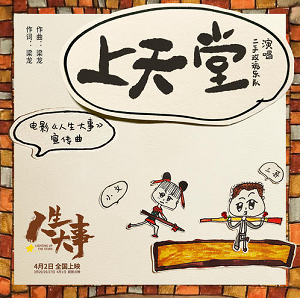 作曲：梁龙
作词：梁龙
上天堂
演唱
二手玫瑰乐队
电影《人生大事》
宣传曲
小文
三哥
人生大事
LIGHTING UP
THE STARS
4月2日 全国上映